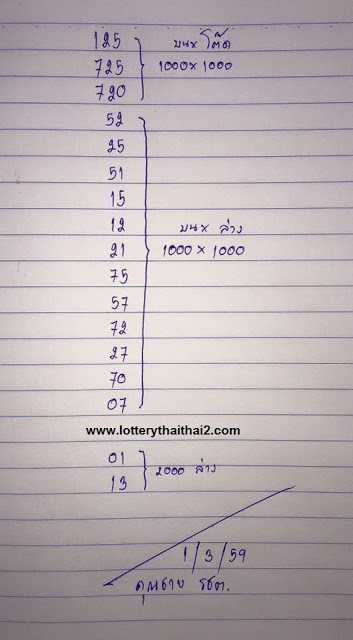 125
725 บน x โต๊ด
720 1000 x 1000
52
25
51
15
12 บน x ล่าง
21 1000 x 1000
75
57
72
27
70
07
www.lotterythaithai2.com
01
13 2000 ล่าง
1/3/59
คุณชาย รชต.